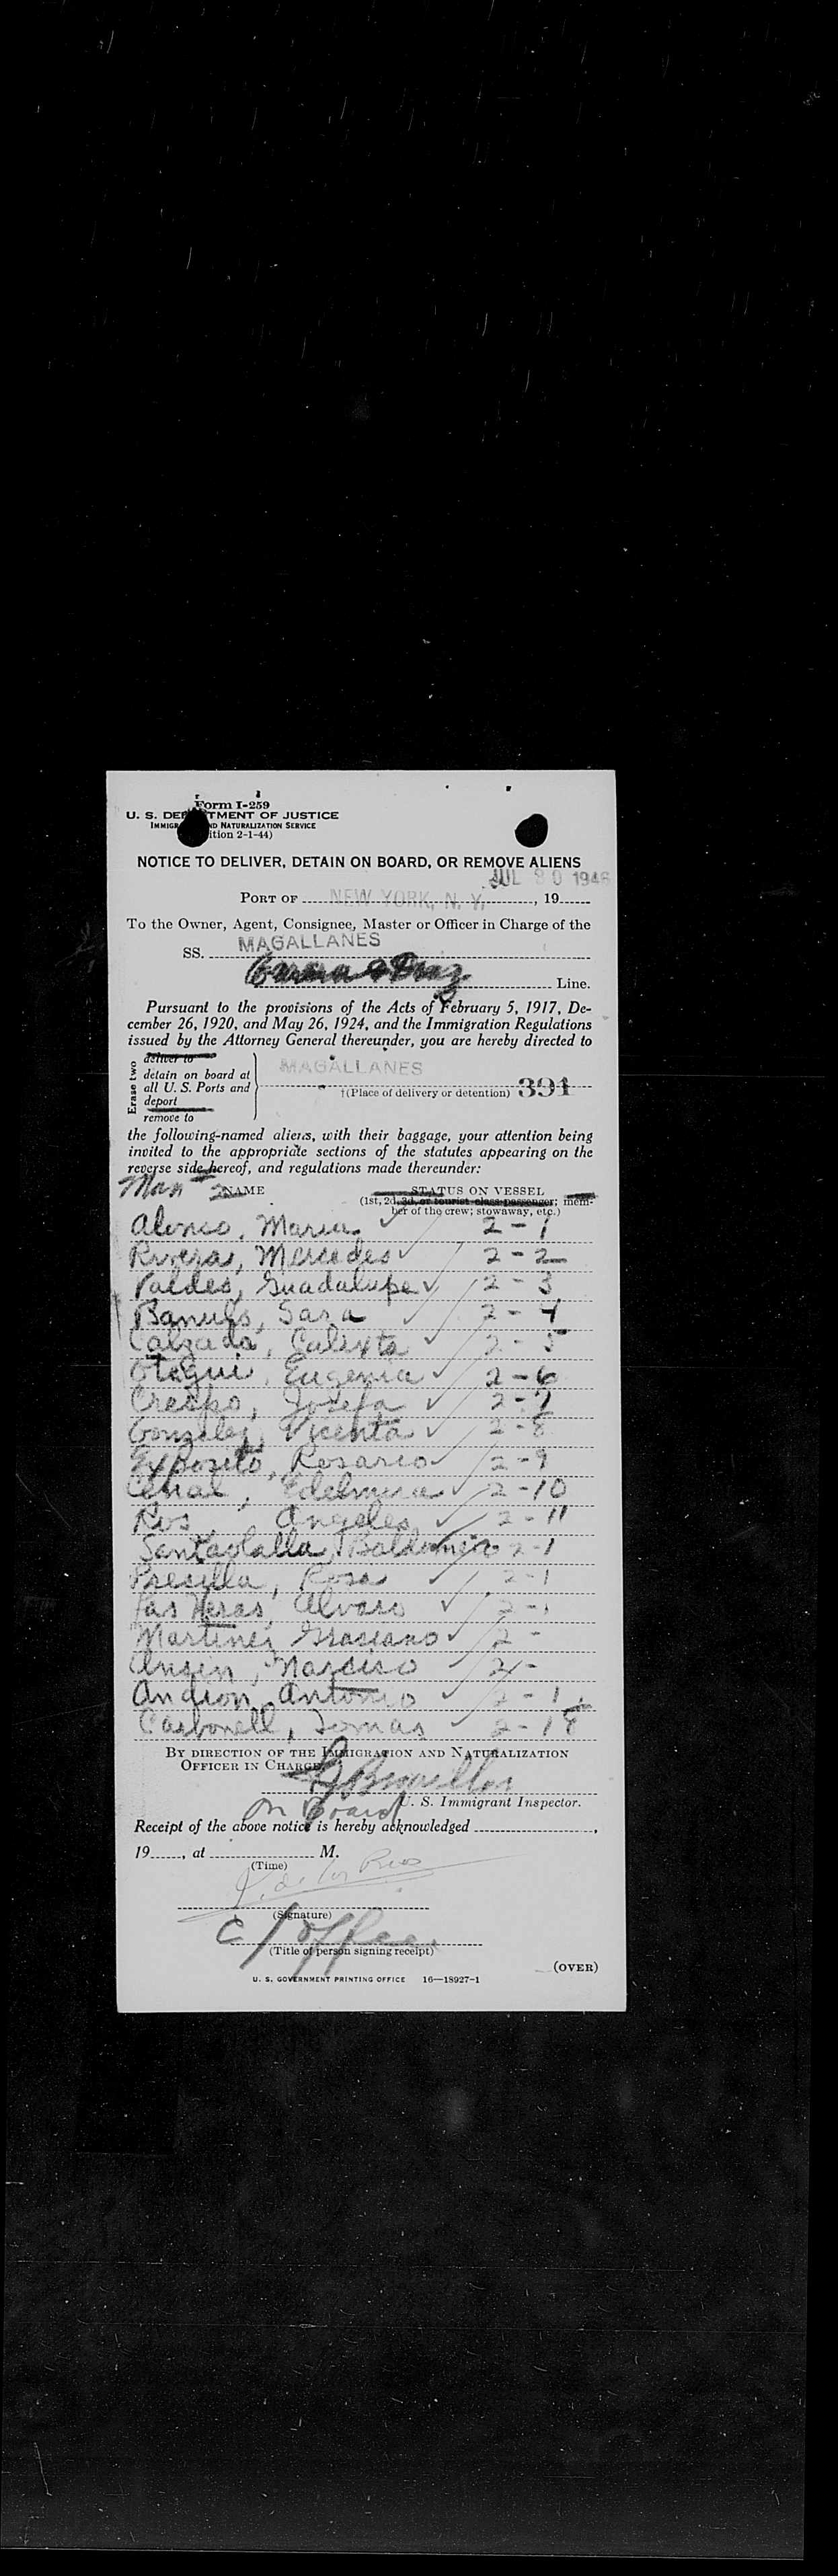 Form I-259
U. S. DEPARTMENT OF JUSTICE
IMMIGRATION AND NATURALIZATION SERVICE
(Edition 2-1-44)
NOTICE TO DELIVER, DETAIN ON BOARD, OR REMOVE ALIENS
JUL 30 1946
PORT OF NEW YORK, N. Y. , 19
To the Owner, Agent, Consignee, Master or Officer in Charge of the
SS. MAGALLANES
Garcia & Diaz Line.
Pursuant to the provisions of the Acts of February 5, 1917, De-
cember 26, 1920, and May 26, 1924, and the Immigration Regulations
issued by the Attorney General thereunder, you are hereby directed to
Erase two
deliver to
detain on board at
all U. S. Ports and
deport
remove to
MAGALLANES
†(Place of delivery or detention) 391
the following-named aliens, with their baggage, your attention being
invited to the appropriate sections of the statutes appearing on the
reverse side hereof, and regulations made thereunder:
Man 2 NAME STATUS ON VESSEL
(1st, 2d, 3d, or tourist class passenger; mem-
ber of the crew; stowaway, etc.)
Alonso, Maria 2 - 1
Riveras, Mercedes 2 - 2
Valdes, Guadalupe 2 - 3
Banuls, Sara 2 - 4
Calzada, Calixta 2 - 5
Otegui, Eugenia 2 - 6
Crespo, Josefa 2 - 7
Gonzalez, Vicenta 2 - 8
Exposito, Rosario 2 - 9
Cenal, Edelmira 2 - 10
Ros, Angeles 2 - 11
Santaolalla, Baldomero 2 - 1
Precilla, Rosa 2 - 1
Las Heras, Alvaro 2 - 1
Martinez Graciano 2 -
Ansin, Narciso 2 -
Andion, Antonio 2 - 1
Carbonell, Tomas 2 - 18
BY DIRECTION OF THE IMMIGRATION AND NATURALIZATION
OFFICER IN CHARGE
U. S. Immigrant Inspector.
On Board
Receipt of the above notice is hereby acknowledged ,
19 , at M.
(Time)
de los Rios
(Signature)
C/ Officer
(Title of person signing receipt)
(OVER)
U. S. GOVERNMENT PRINTING OFFICE 16—18927-1